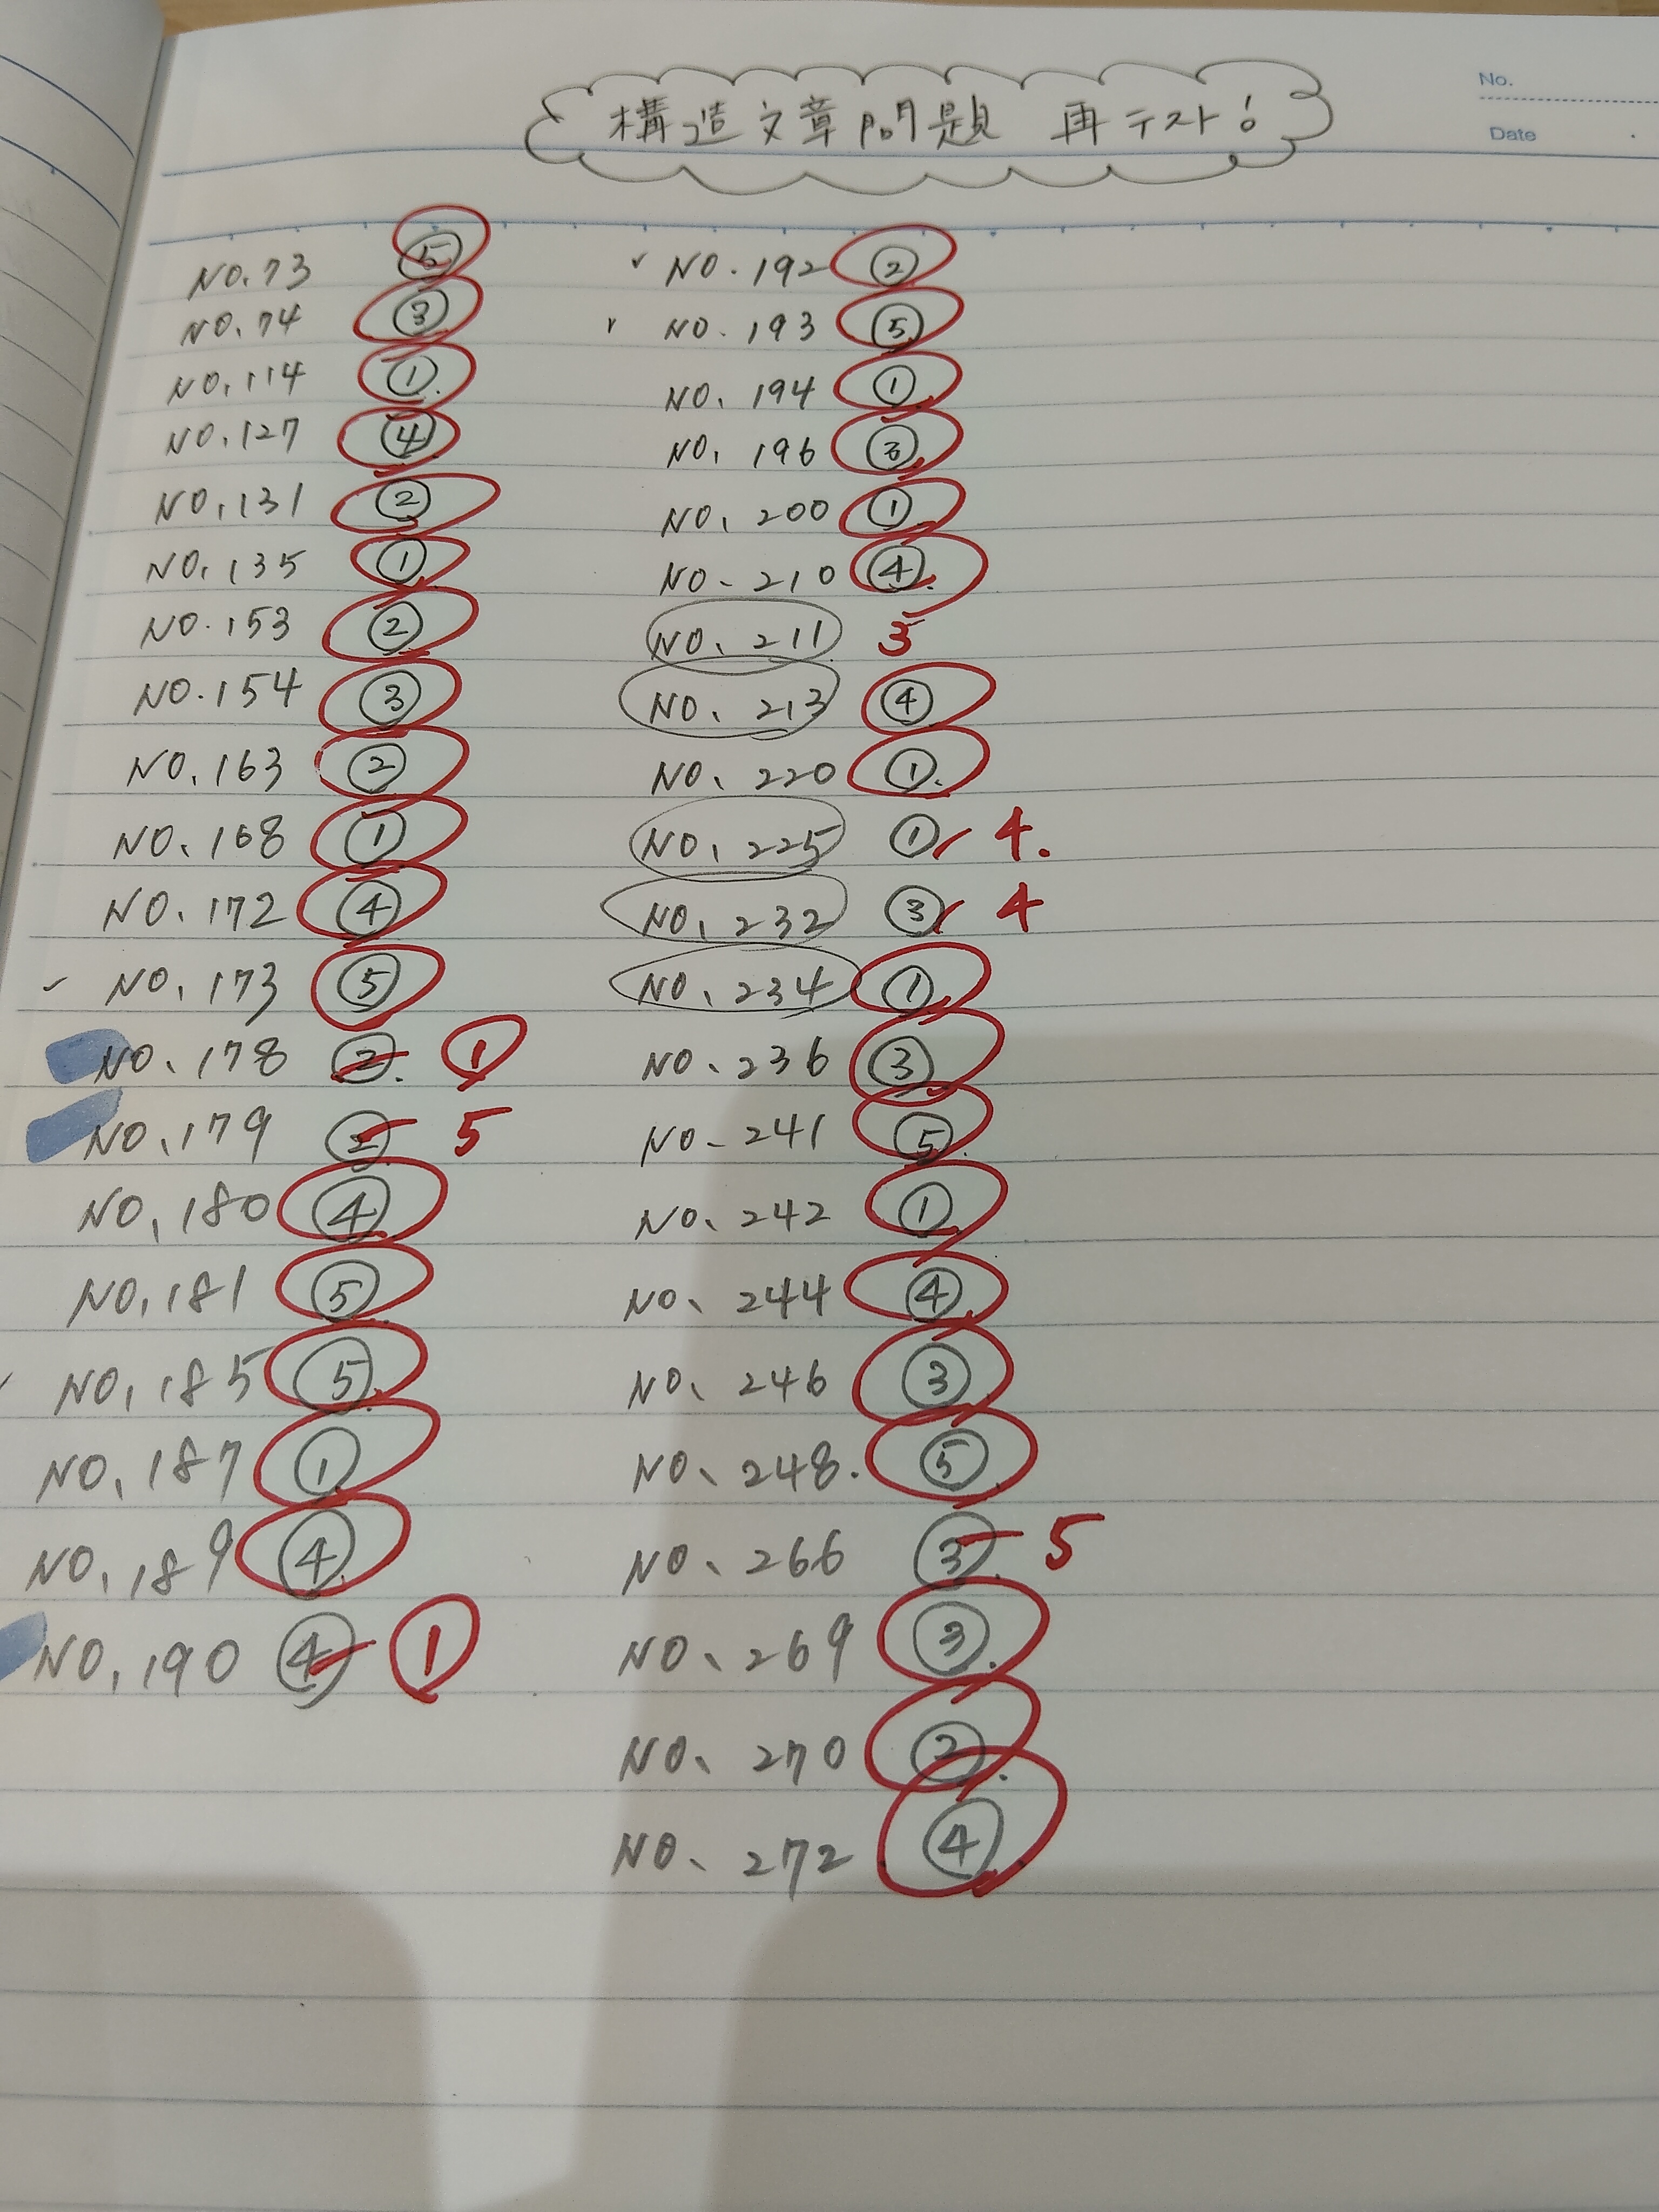 No.
Date
構造文章問題 再テスト!
NO.73 ⑤
NO.74 ③
NO.114 ①
NO.127 ④
NO.131 ②
NO.135 ①
NO.153 ②
NO.154 ③
NO.163 ②
NO.168 ①
NO.172 ④
NO.173 ⑤
NO.178 ② ①
NO.179 ② 5
NO.180 ④
NO.181 ⑤
NO.185 ⑤
NO.187 ①
NO.189 ④
NO.190 ④ ①
NO.192 ②
NO.193 ⑤
NO.194 ①
NO.196 ③
NO.200 ①
NO.210 ④
NO.211 5
NO.213 ④
NO.220 ①
NO.225 ① 4.
NO.232 ③ 4
NO.234 ①
NO.236 ③
NO.241 ⑤
NO.242 ①
NO.244 ④
NO.246 ③
NO.248. ⑤
NO.266 ③ 5
NO.269 ③
NO.270 ②
NO.272 ④